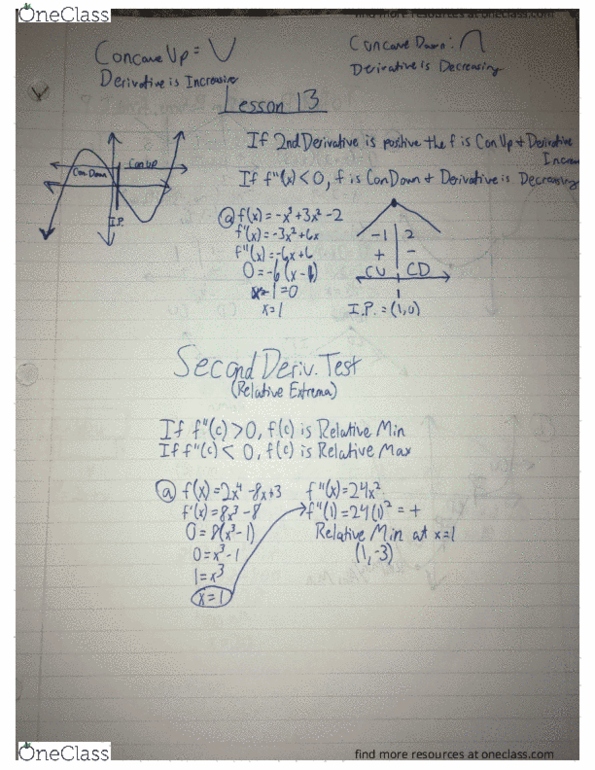 OneClass
find more resources at oneclass.com
Concave Up = ∪
Derivative is Increasing
Concave Down: ∩
Derivative is Decreasing
Lesson 13
If 2nd Derivative is positive the f is Con Up + Derivative
Increa
If f"(x) < 0, f is Con Down + Derivative is Decreasing
Con Down
Con Up
I.P.
(a) f(x) = -x³+3x²-2
f'(x) = -3x²+6x
f"(x) = -6x+6
0 = -6(x-1)
x-1=0
x=1
-1 | 2
+ | -
CU | CD
1
I.P. = (1,0)
Second Deriv. Test
(Relative Extrema)
If f"(c) > 0, f(c) is Relative Min
If f"(c) < 0, f(c) is Relative Max
(a) f(x) = 2x⁴ -8x+3
f'(x) = 8x³ -8
0 = 8(x³-1)
0 = x³-1
1 = x³
x = 1
f"(x) = 24x²
f"(1) = 24(1)² = +
Relative Min at x=1
(1,-3)
OneClass
find more resources at oneclass.com